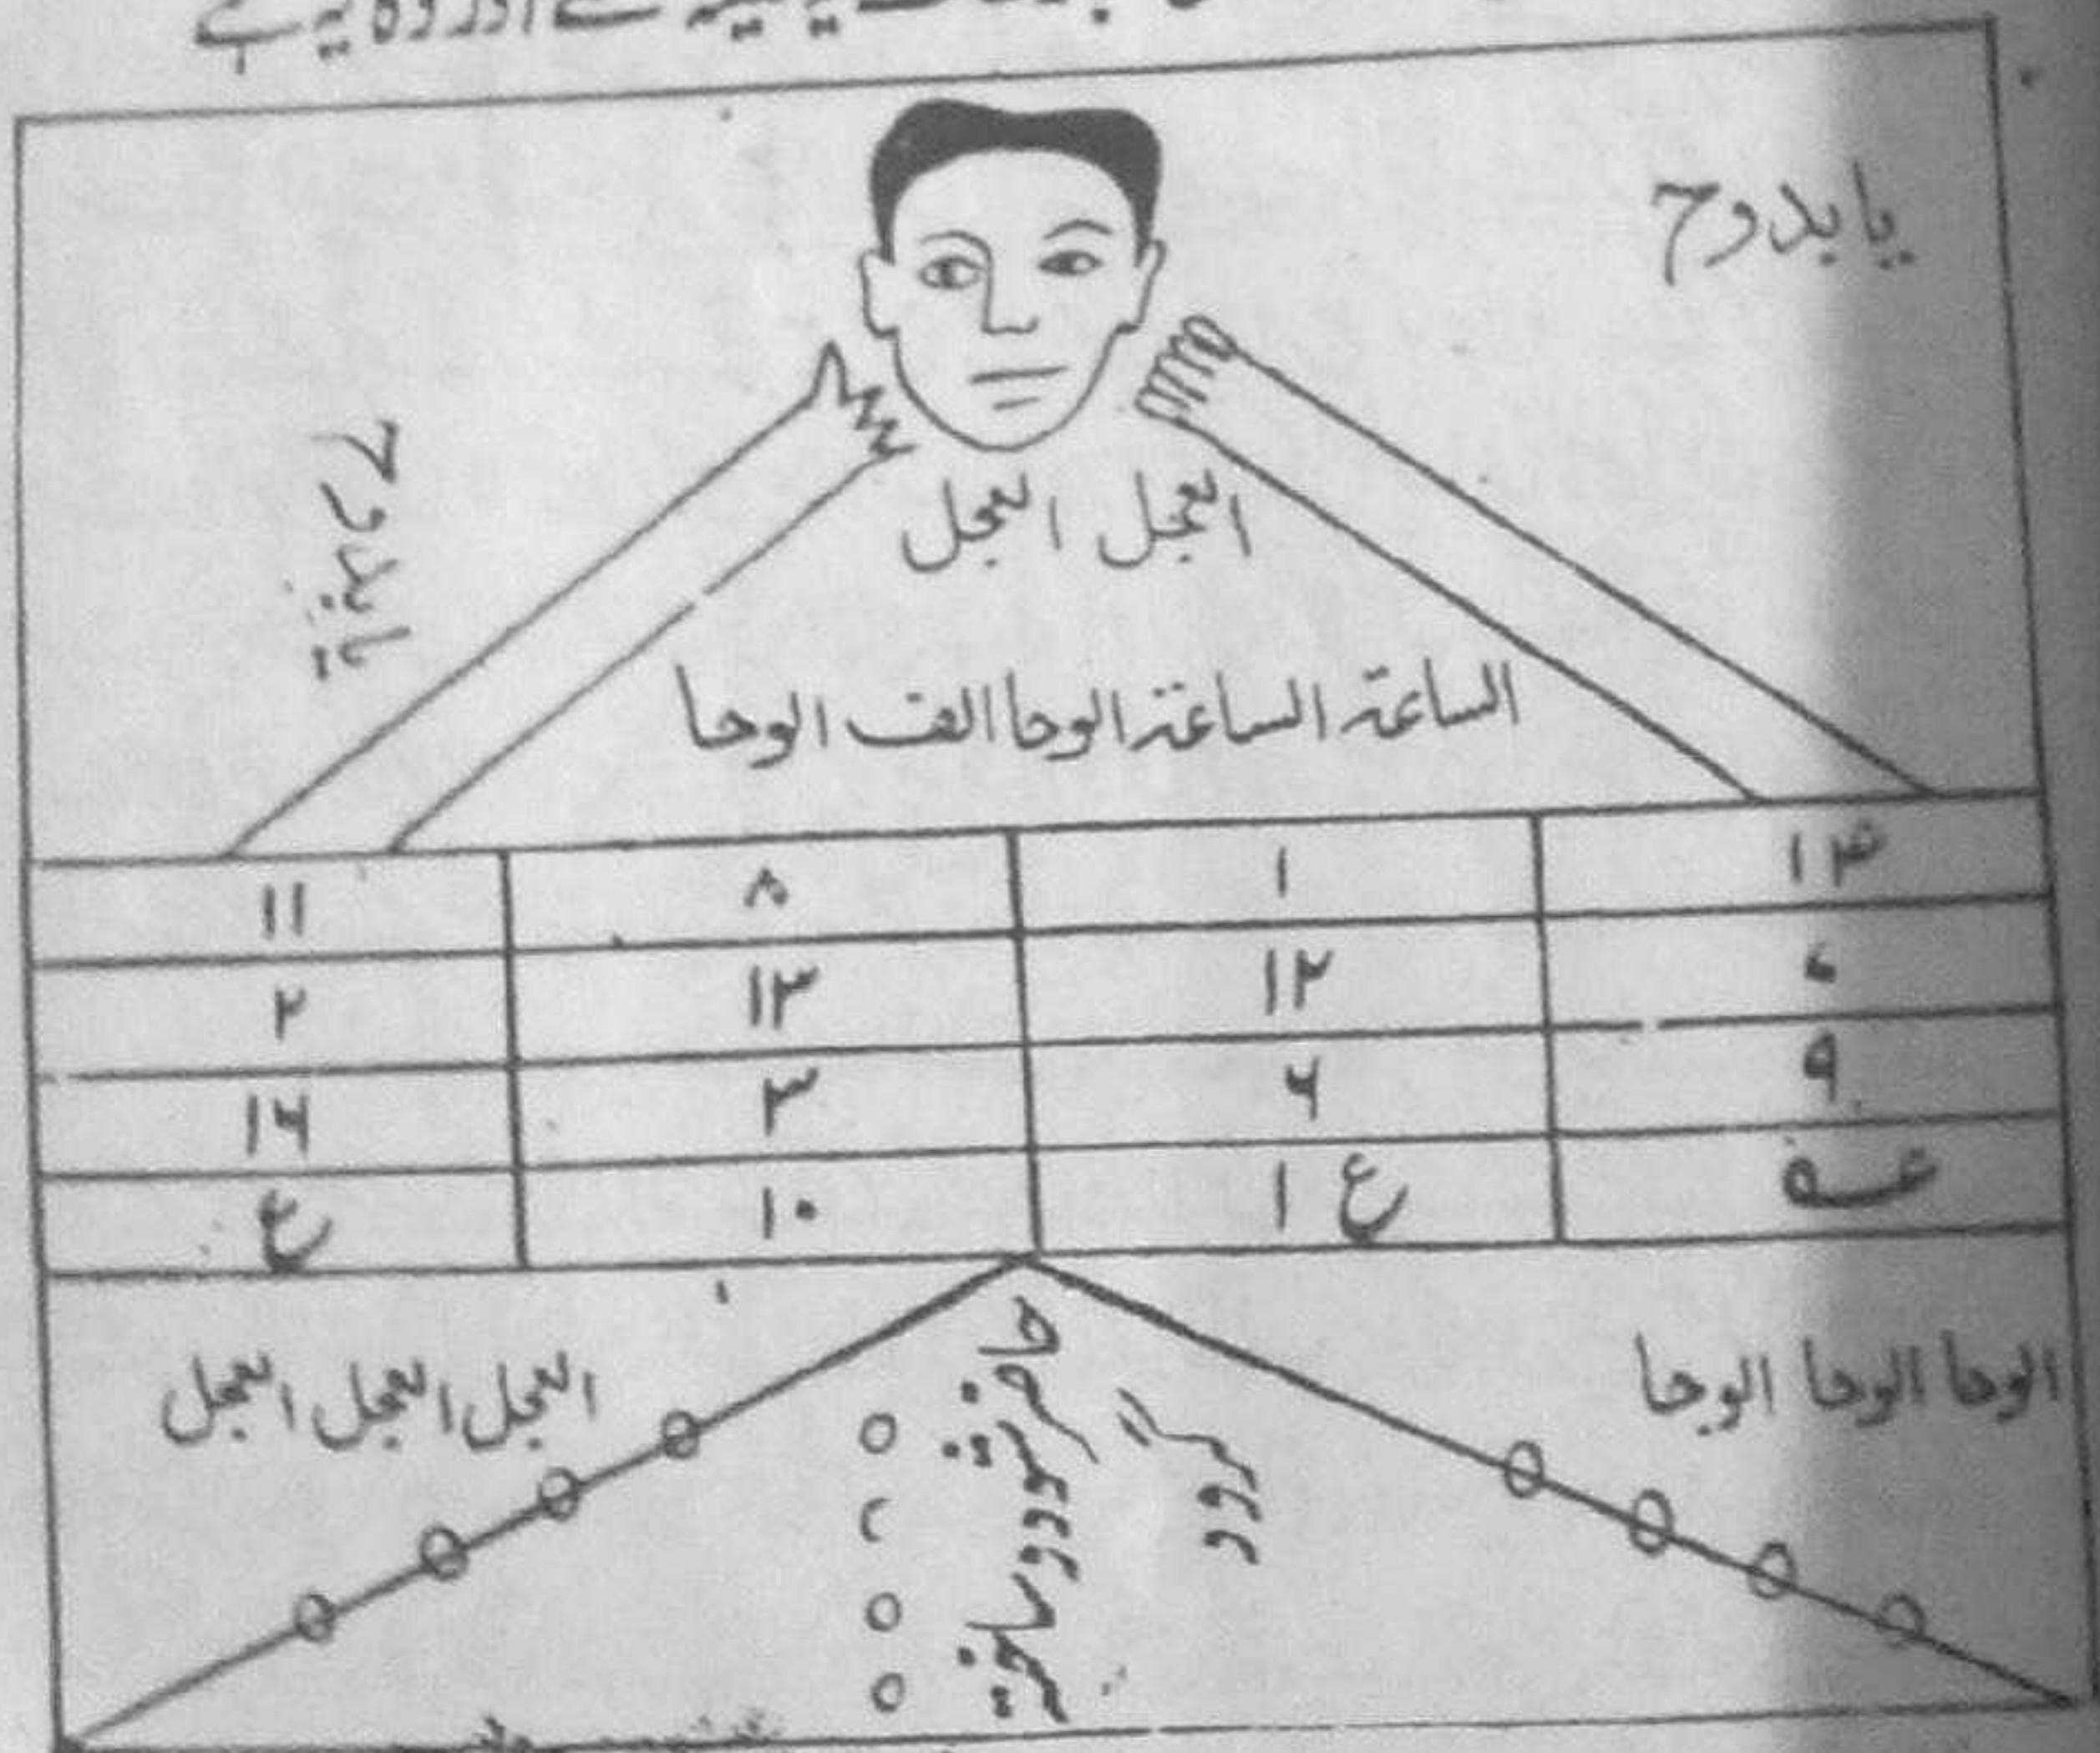 اور وہ یہ ہے
یا بدوح
یا بدوح
العجل العجل
الساعة الساعة الوحا الف الوحا
۱۱ ۸ ۱ ۱۴
۲ ۱۳ ۱۲
۱۶ ۳ ۶ ۹
ع ۱۰ ۱ ع عـہ
العجل العجل العجل
الوحا الوحا الوحا
حاضر شود
گردد